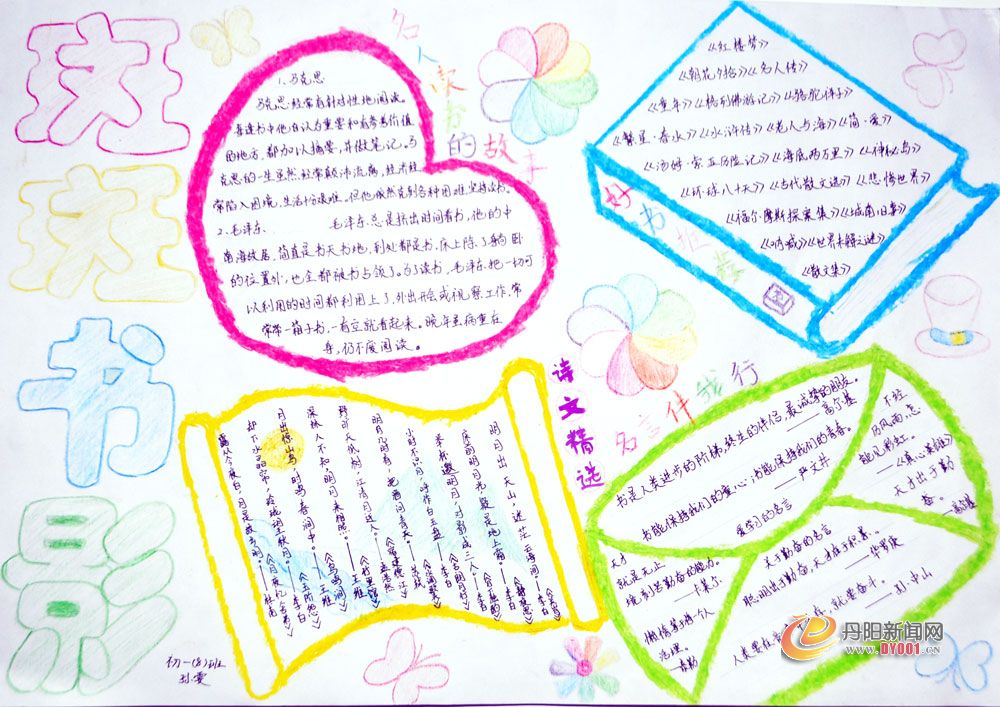 斑
斑
书
影
名人读书的故事
1、马克思
马克思经常有针对性地阅读。
每逢书中他自认为重要和有参考价值
的地方，都加以摘要，并做笔记。马
克思的一生虽然经常颠沛流离，经济经
常陷入困境，生活十分艰难。但他依然克制各种困难坚持读书。
2、毛泽东、 毛泽东总是挤出时间看书，他的中
南海故居，简直是书天书地，到处都是书，床上除了躺卧
的位置外，也全都被书占领了。为了读书，毛泽东把一切可
以利用的时间都利用上了，外出开会或视察工作，常
常带一箱子书，一有空就看起来。晚年虽病重在
身，仍不废阅读。
好书推荐
《红楼梦》
《朝花夕拾》《名人传》
《童年》《格列佛游记》《骆驼祥子》
《繁星·春水》《水浒传》《老人与海》《简·爱》
《汤姆·索亚历险记》《海底两万里》《神秘岛》
《环球八十天》《古代散文选》《悲惨世界》
《福尔摩斯探案集》《城南旧事》
《呐喊》《世界未解之谜》
《散文集》
诗文精选
明月出天山，苍茫云海间。——李白
床前明月光，疑是地上霜。——李白
举杯邀明月，对影成三人。——李白
小时不识月，呼作白玉盘。——李白
明月几时有，把酒问青天。
野旷天低树，江清月近人。——孟浩然
深林人不知，明月来相照。——王维
月出惊山鸟，时鸣春涧中。——王维
却下水晶帘，玲珑望秋月。
露从今夜白，月是故乡明。——杜甫
名言伴我行
书是人类进步的阶梯，终生的伴侣，最诚挚的朋友。
——高尔基
书能保持我们的童心；书能保持我们的青春。
——严文井
爱学习的名言
不经
历风雨，怎
能见彩虹。
——《真心英雄》
天才出于勤
奋。
——高尔基
天才
就是无止
境刻苦勤奋的能力。
——卡莱尔
懒惰等于将一个人
活埋。
——泰勒
关于勤奋的名言
聪明出于勤奋，天才在于积累。
——华罗庚
就要奋斗。
——孙中山
初一(8)班
丹阳新闻网
WWW.DY001.CN